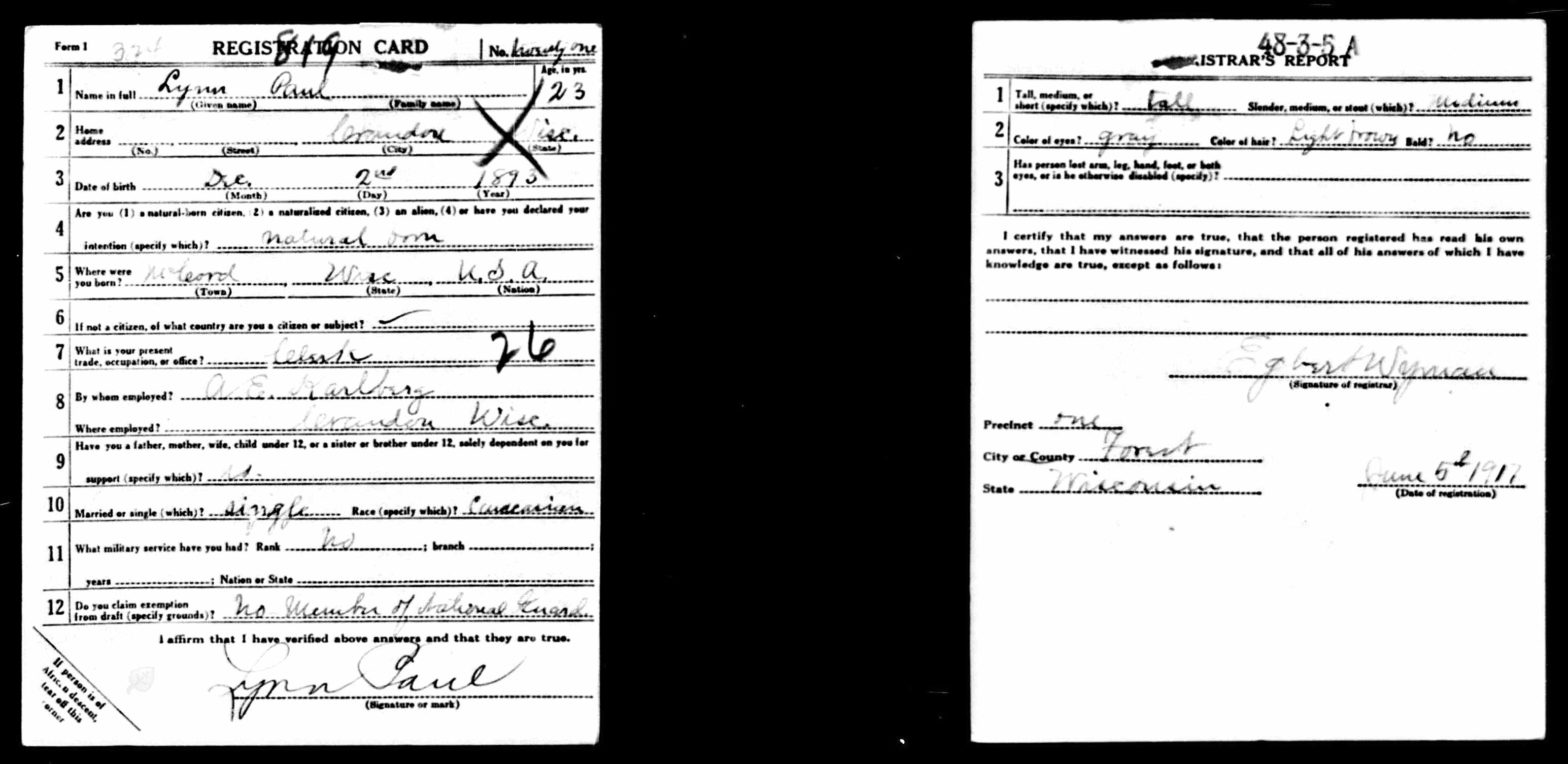 Form 1 324 REGISTRATION CARD No. twenty one
819
1 Name in full Lynn Paul Age, in yrs. 23
(Given name) (Family name)
2 Home address Crandon Wisc.
(No.) (Street) (City) (State)
3 Date of birth Dec. 2nd 1893
(Month) (Day) (Year)
4 Are you (1) a natural-born citizen, (2) a naturalized citizen, (3) an alien, (4) or have you declared your
intention (specify which)? natural born
5 Where were you born? McCord, Wisc, U.S.A.
(Town) (State) (Nation)
6 If not a citizen, of what country are you a citizen or subject?
7 What is your present trade, occupation, or office? Clerk 26
8 By whom employed? A. E. Karlberg
Where employed? Crandon Wisc.
9 Have you a father, mother, wife, child under 12, or a sister or brother under 12, solely dependent on you for
support (specify which)?
10 Married or single (which)? single Race (specify which)? Caucasian
11 What military service have you had? Rank No ; branch ;
years ; Nation or State
12 Do you claim exemption from draft (specify grounds)? No Member of National Guard.
I affirm that I have verified above answers and that they are true.
Lynn Paul
(Signature or mark)
If person is of
African descent,
tear off this
corner
48-3-5 A
REGISTRAR'S REPORT
1 Tall, medium, or short (specify which)? tall Slender, medium, or stout (which)? Medium
2 Color of eyes? gray Color of hair? Light brown Bald? No
3 Has person lost arm, leg, hand, foot, or both
eyes, or is he otherwise disabled (specify)?
I certify that my answers are true, that the person registered has read his own
answers, that I have witnessed his signature, and that all of his answers of which I have
knowledge are true, except as follows:
Egbert Wyman
(Signature of registrar)
Precinct one
City or County Forest
State Wisconsin June 5th 1917
(Date of registration)